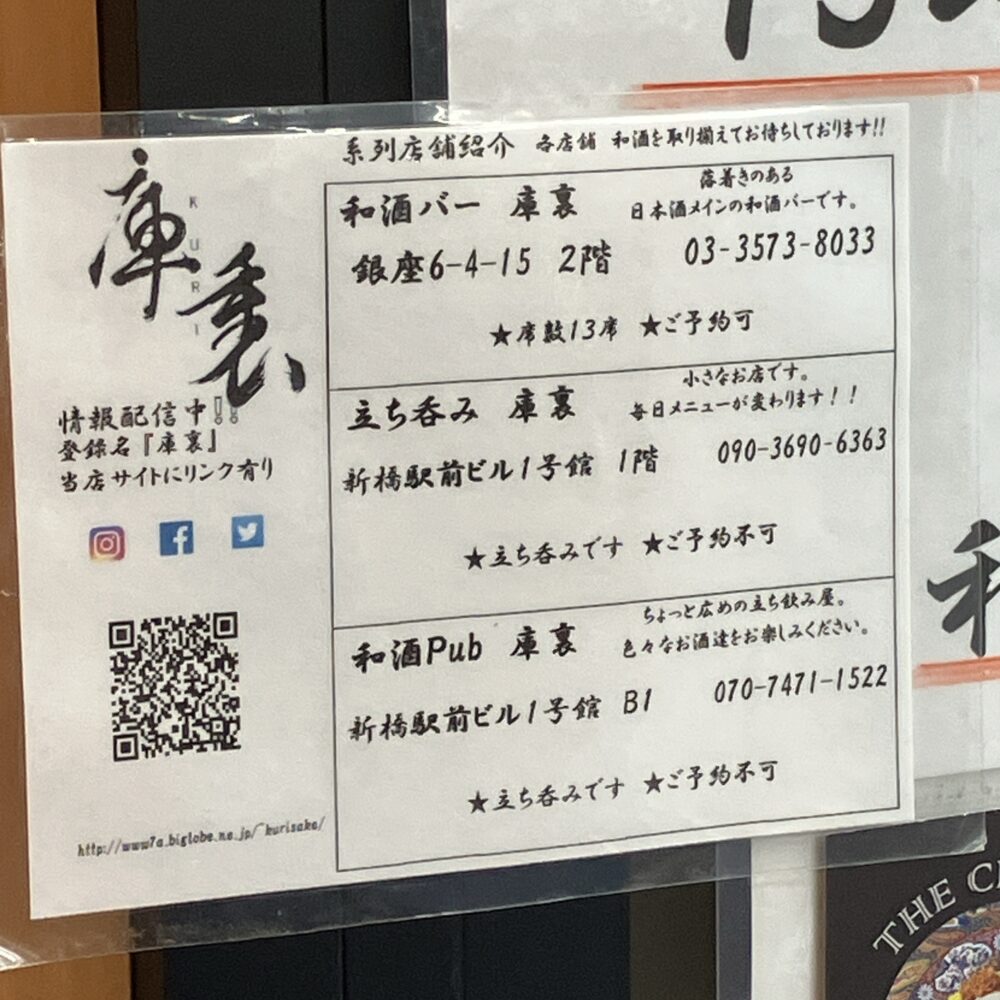 系列店舗紹介 各店舗 和酒を取り揃えてお待ちしております!!
庫裏
KURI
情報配信中!!
登録名『庫裏』
当店サイトにリンク有り
http://www7a.biglobe.ne.jp/~kurisake/
和酒バー 庫裏
落着きのある
日本酒メインの和酒バーです。
銀座6-4-15 2階
03-3573-8033
★席数13席 ★ご予約可
立ち呑み 庫裏
小さなお店です。
毎日メニューが変わります！！
新橋駅前ビル1号館 1階
090-3690-6363
★立ち呑みです ★ご予約不可
和酒Pub 庫裏
ちょっと広めの立ち飲み屋。
色々なお酒達をお楽しみください。
新橋駅前ビル1号館 B1
070-7471-1522
★立ち呑みです ★ご予約不可
THE